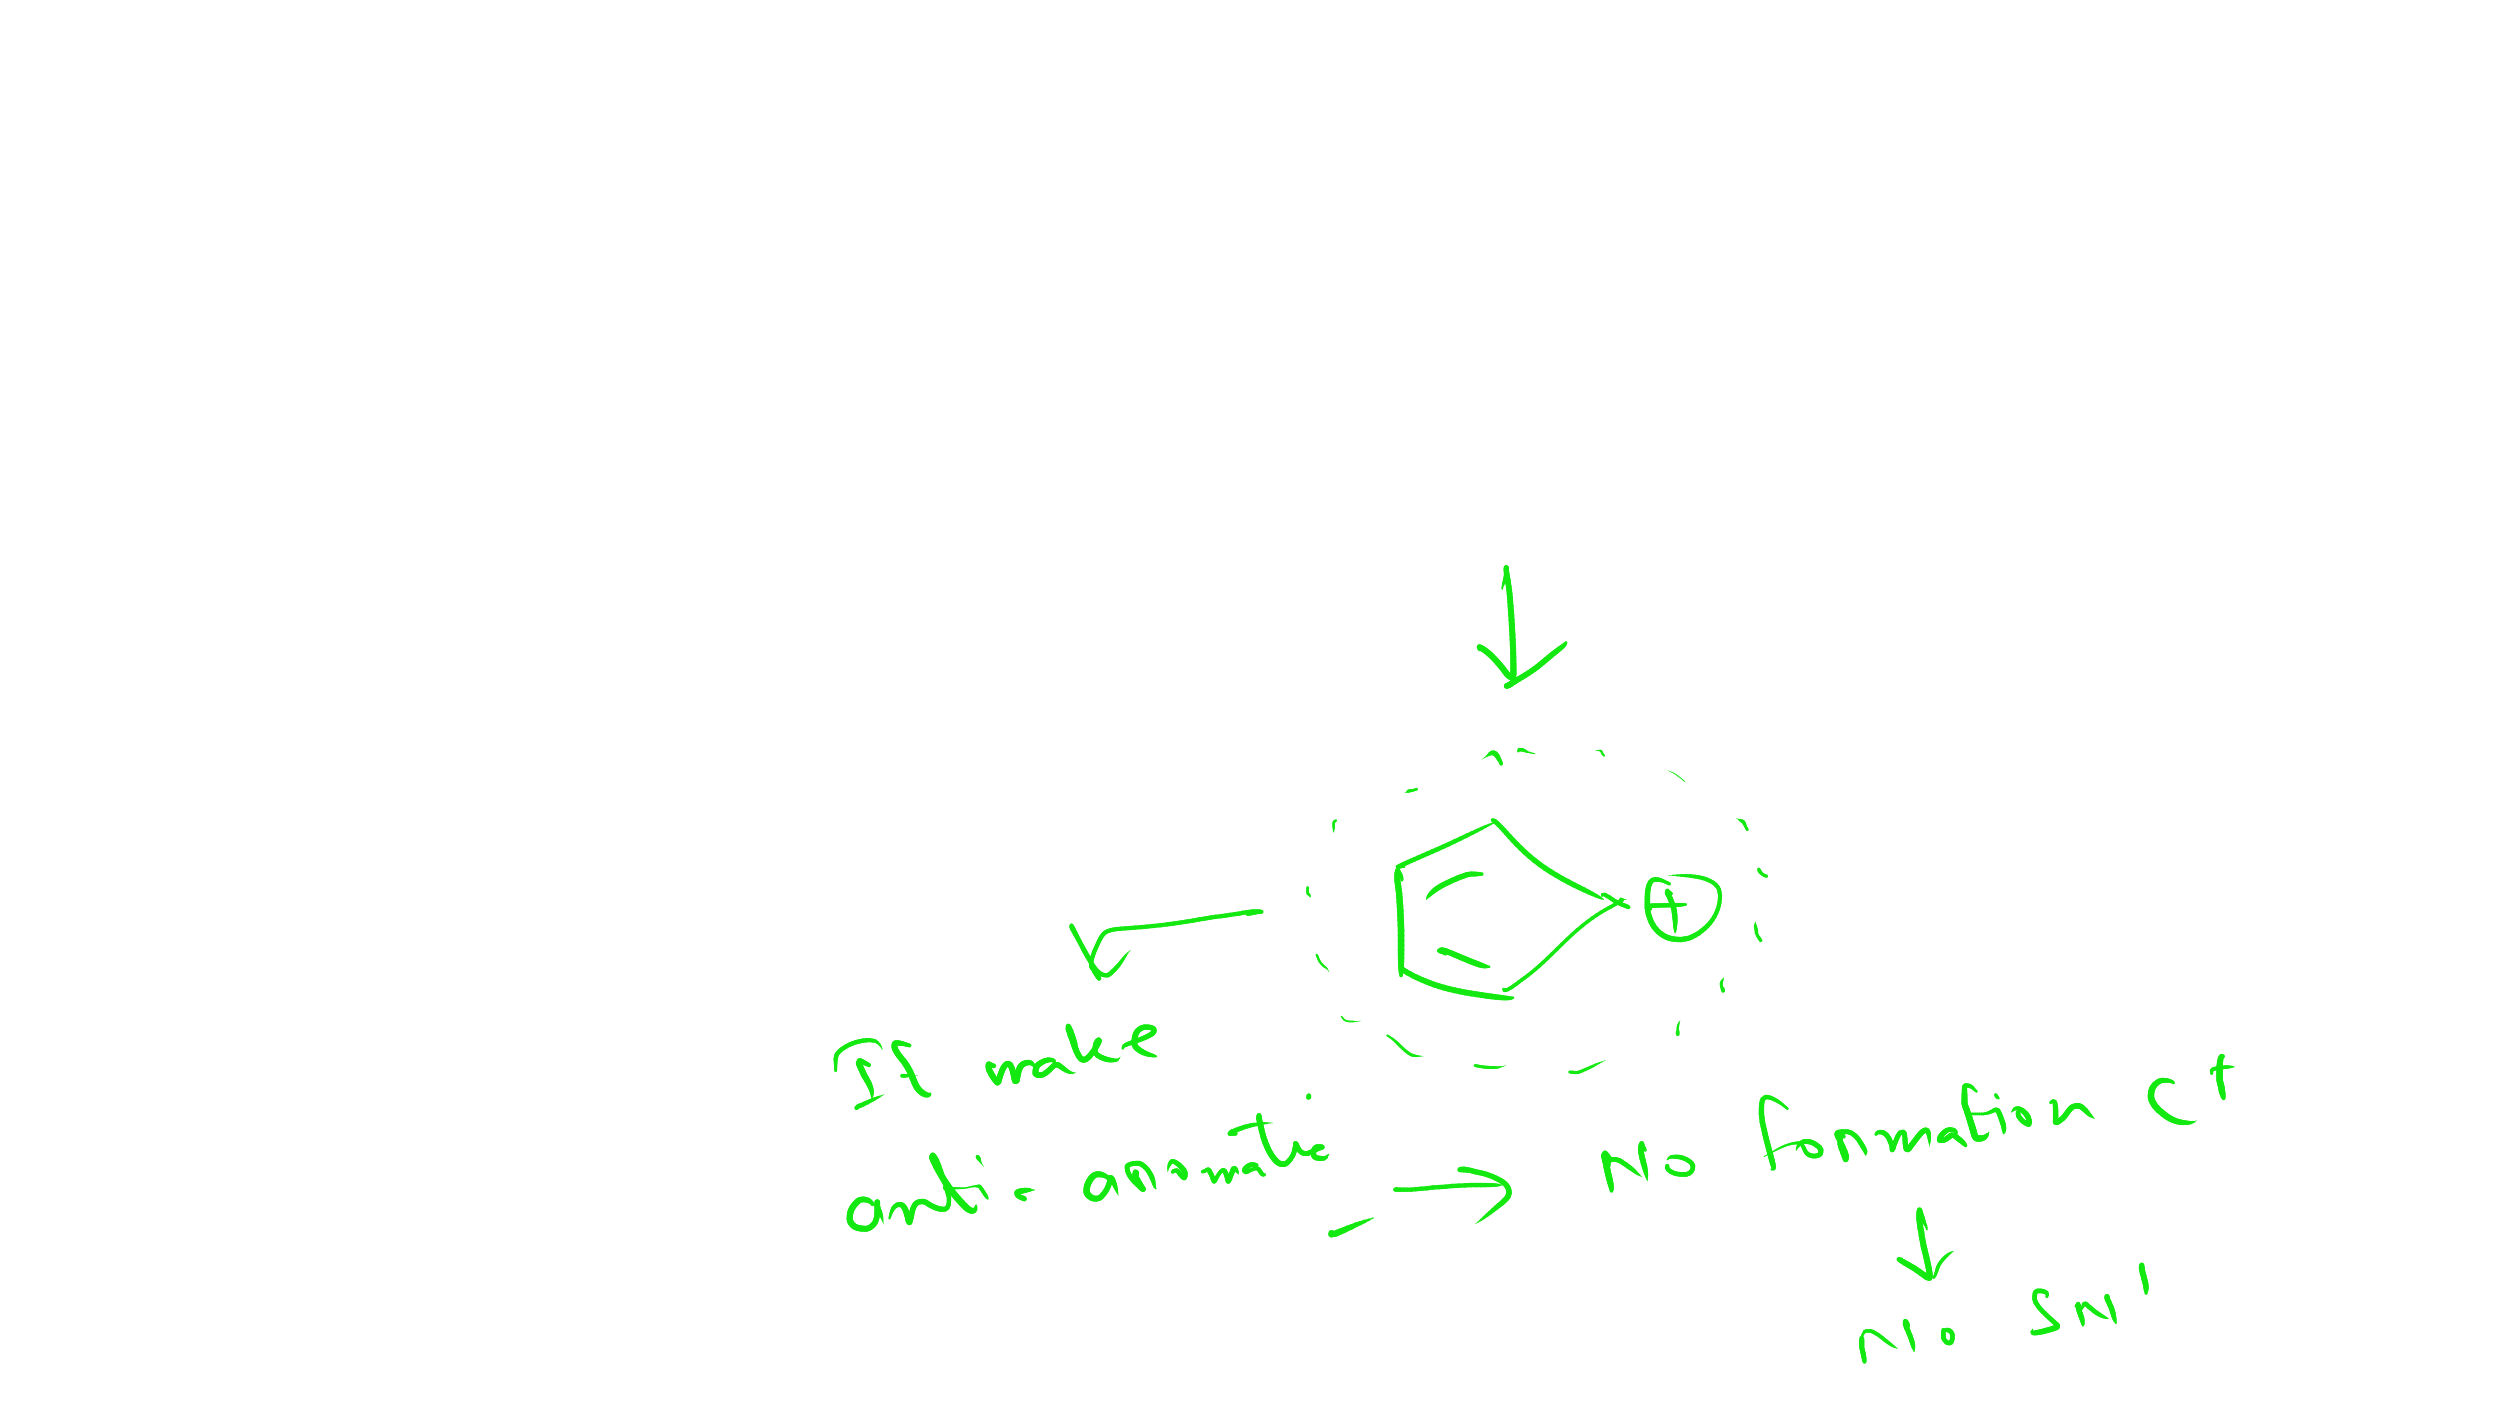 +
If make
anti-aromatic → No formation C+
No SN1